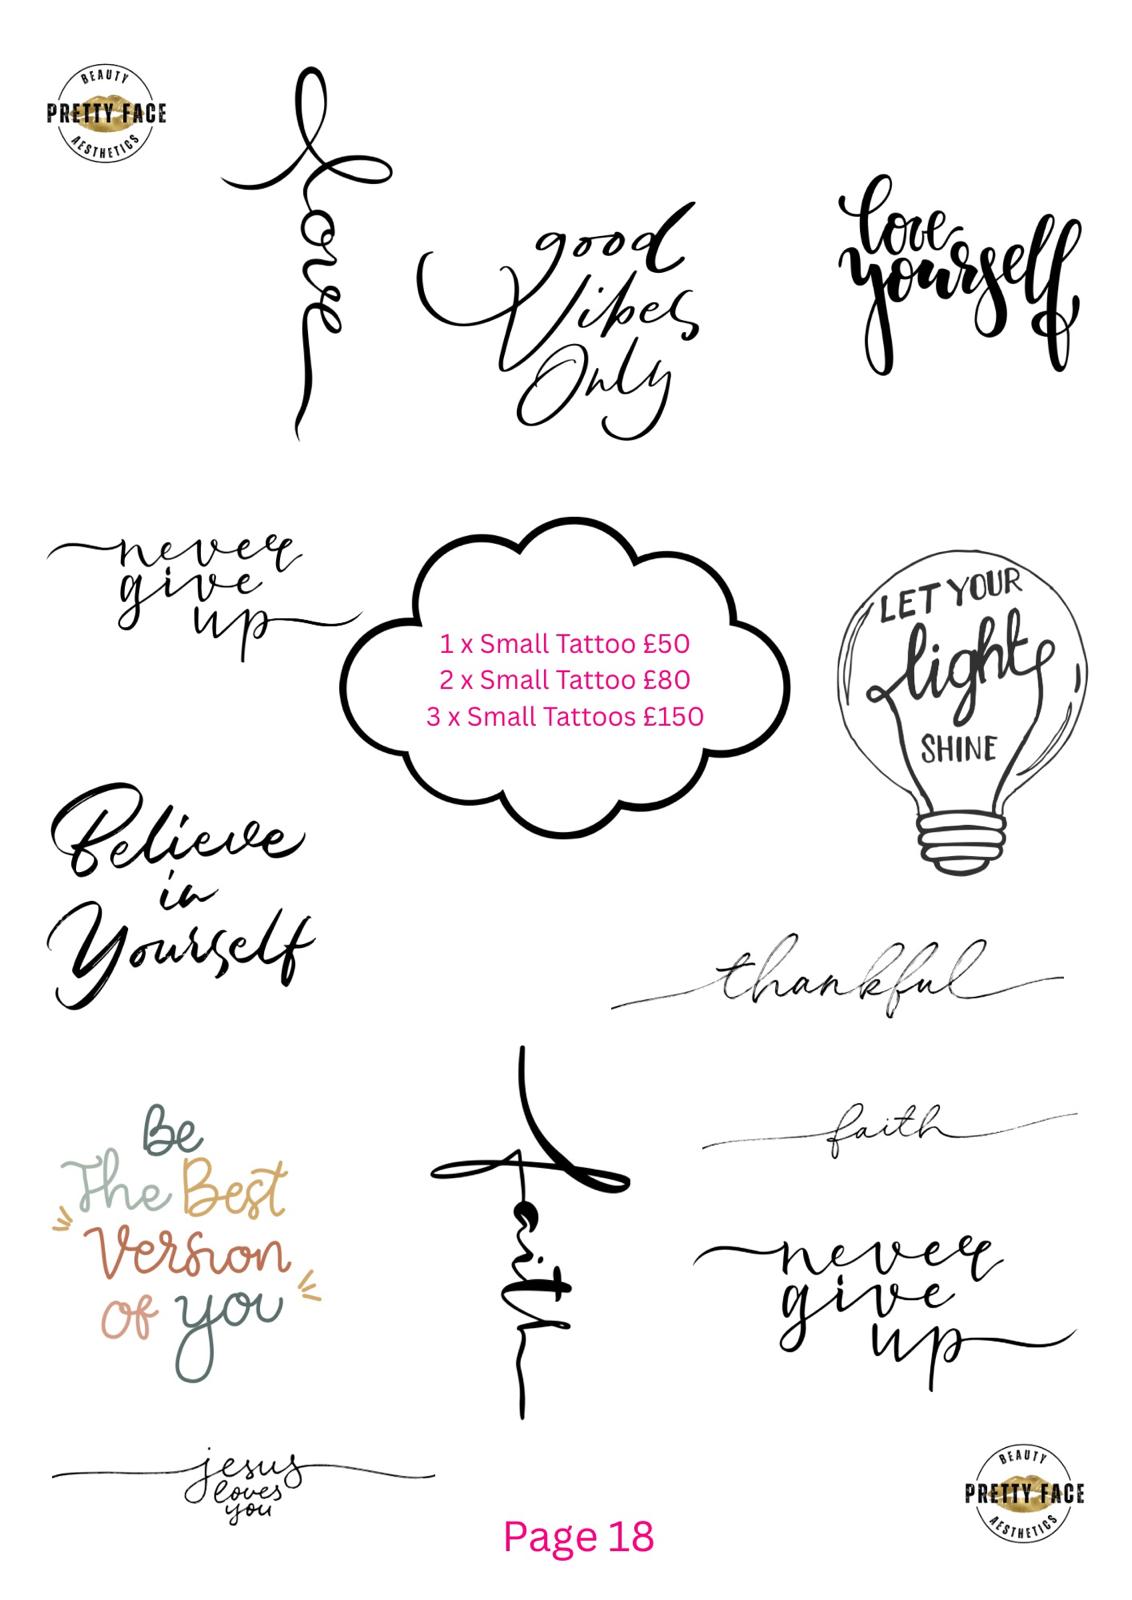 BEAUTY
PRETTY FACE
AESTHETICS
love
good
Vibes
Only
love
yourself
never
give
up
1 x Small Tattoo £50
2 x Small Tattoo £80
3 x Small Tattoos £150
LET YOUR
light
SHINE
Believe
in
Yourself
thankful
Be
The Best
Version
of you
faith
faith
never
give
up
jesus
loves
you
Page 18
BEAUTY
PRETTY FACE
AESTHETICS